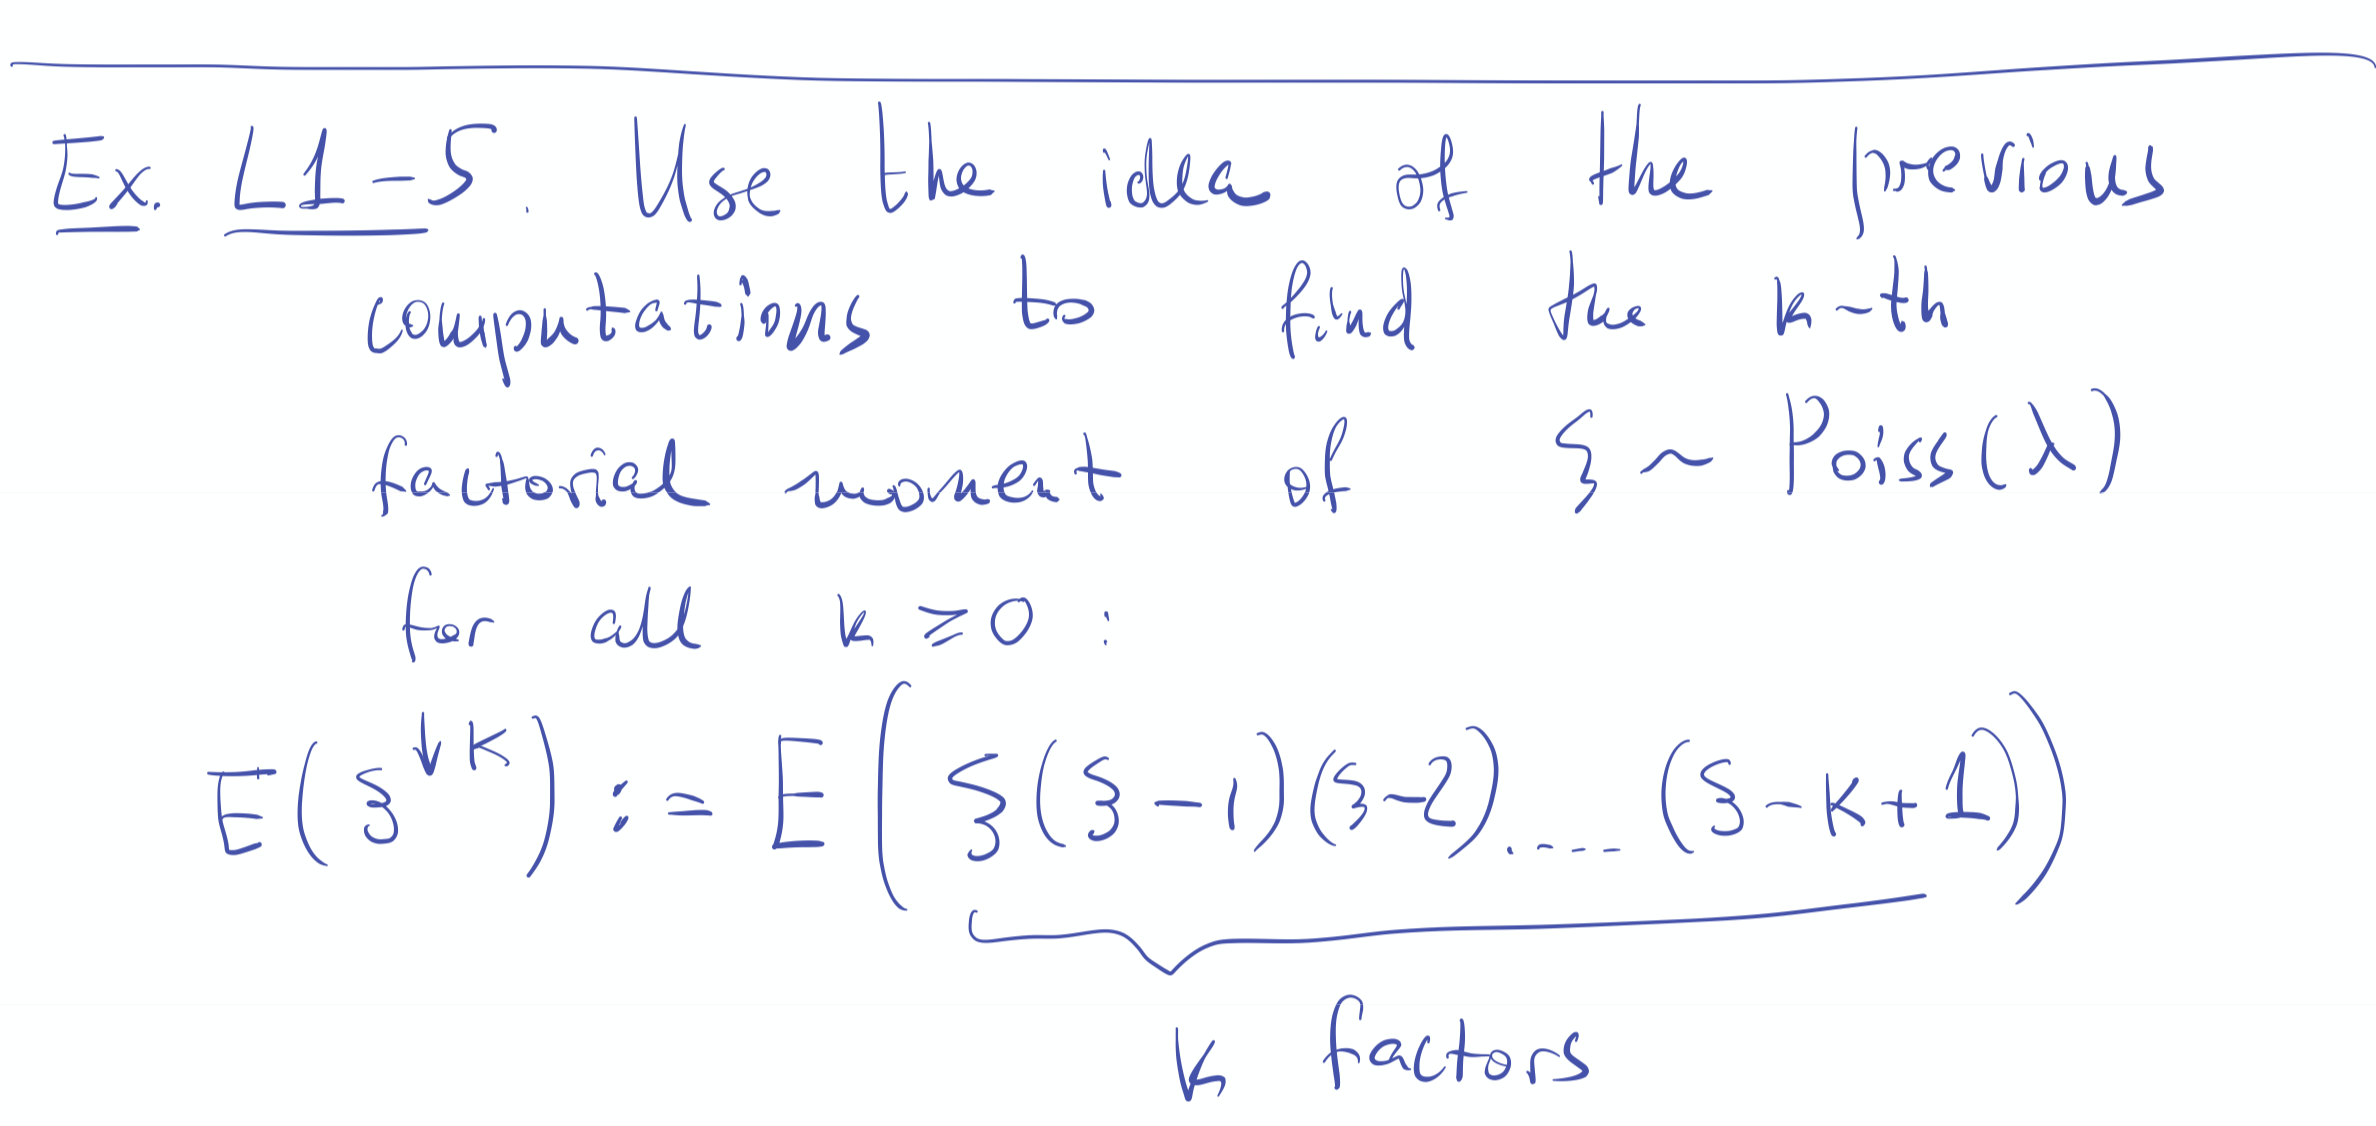 Ex. L1-5. Use the idea of the previous
computations to find the k-th
factorial moment of ξ ~ Poiss(λ)
for all k ≥ 0 :
E(ξ^{↓k}) := E(ξ(ξ-1)(ξ-2)..... (ξ-k+1))
k factors